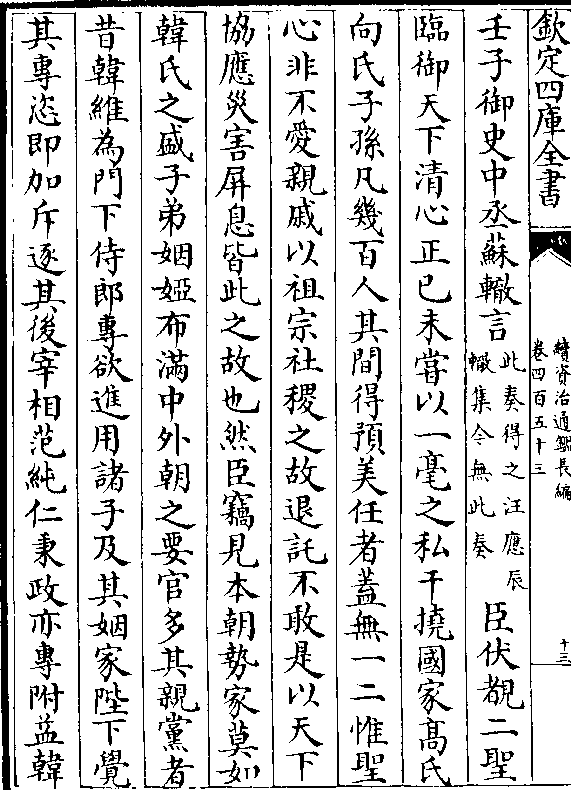 欽定四庫全書
續資治通鑑長編
卷四百五十三
十三
壬子御史中丞蘇轍言
此奏得之汪應辰
轍集今無此奏
臣伏覩二聖
臨御天下清心正已未嘗以一毫之私干撓國家髙氏
向氏子孫凡幾百人其間得預美任者蓋無一二惟聖
心非不愛親戚以祖宗社稷之故退託不敢是以天下
協應災害屏息皆此之故也然臣竊見本朝勢家莫如
韓氏之盛子弟姻婭布滿中外朝之要官多其親黨者
昔韓維為門下侍郎專欲進用諸子及其姻家陛下覺
其專恣即加斥逐其後宰相范純仁秉政亦專附益韓